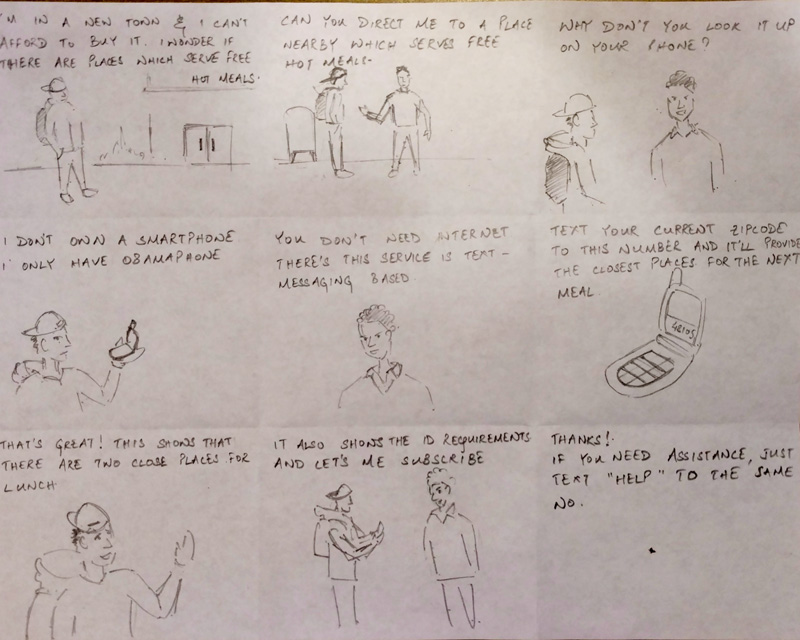 'M IN A NEW TOWN & I CAN'T
AFFORD TO BUY IT. I WONDER IF
THERE ARE PLACES WHICH SERVE FREE
HOT MEALS.
CAN YOU DIRECT ME TO A PLACE
NEARBY WHICH SERVES FREE
HOT MEALS.
WHY DON'T YOU LOOK IT UP
ON YOUR PHONE?
I DON'T OWN A SMARTPHONE
I ONLY HAVE OBAMAPHONE
YOU DON'T NEED INTERNET
THERE'S THIS SERVICE IS TEXT-
MESSAGING BASED.
TEXT YOUR CURRENT ZIPCODE
TO THIS NUMBER AND IT'LL PROVIDE
THE CLOSEST PLACES FOR THE NEXT
MEAL.
48105
THAT'S GREAT! THIS SHOWS THAT
THERE ARE TWO CLOSE PLACES FOR
LUNCH
IT ALSO SHOWS THE ID REQUIREMENTS
AND LET'S ME SUBSCRIBE
THANKS!
IF YOU NEED ASSISTANCE, JUST
TEXT "HELP" TO THE SAME
NO.